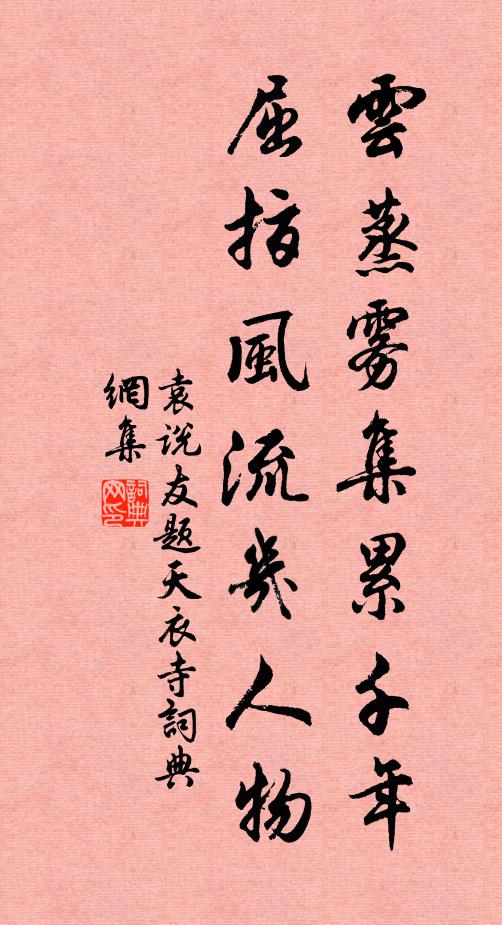 雲蒸雾集累千年
屈指風流幾人物
袁说友题天衣寺詞典
網集
詞典網印